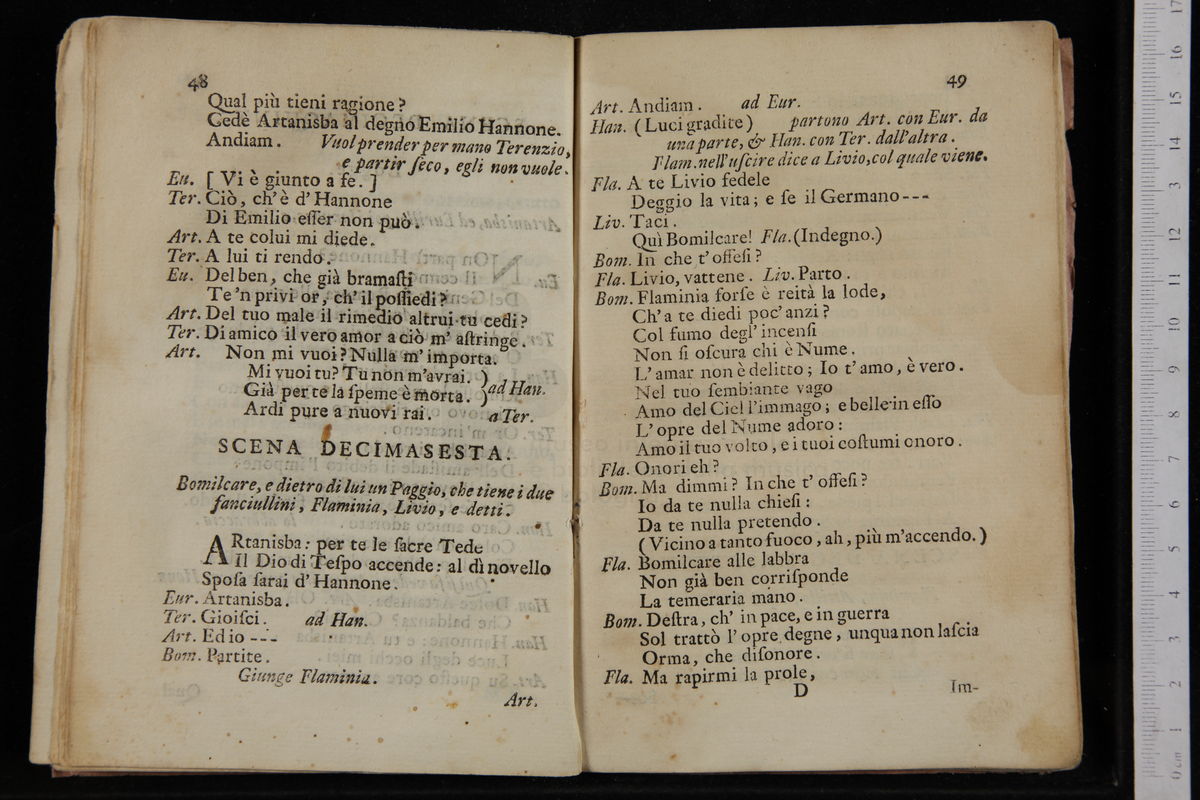 48
Qual più tieni ragione?
Cedè Artanisba al degno Emilio Hannone.
Andiam. Vuol prender per mano Terenzio,
e partir ſeco, egli non vuole.
Eu. [ Vi è giunto a fe. ]
Ter. Ciò, ch' è d' Hannone
Di Emilio eſſer non può.
Art. A te colui mi diede.
Ter. A lui ti rendo.
Eu. Del ben, che già bramaſti
Te 'n privi or, ch' il poſſiedi?
Art. Del tuo male il rimedio altrui tu cedi?
Ter. Di amico il vero amor a ciò m' aſtringe.
Art. Non mi vuoi? Nulla m' importa.
Mi vuoi tu? Tu non m'avrai. )
Già per te la ſpeme è morta. ) ad Han.
Ardi pure a nuovi rai. a Ter.
SCENA DECIMASESTA.
Bomilcare, e dietro di lui un Paggio, che tiene i due
fanciullini, Flaminia, Livio, e detti.
ARtanisba: per te le ſacre Tede
Il Dio di Teſpo accende: al dì novello
Spoſa ſarai d' Hannone.
Eur. Artanisba.
Ter. Gioiſci. ad Han.
Art. Ed io ---
Bom. Partite.
Giunge Flaminia.
Art.
49
Art. Andiam. ad Eur.
Han. (Luci gradite) partono Art. con Eur. da
una parte, & Han. con Ter. dall'altra.
Flam. nell' uſcire dice a Livio, col quale viene.
Fla. A te Livio fedele
Deggio la vita; e ſe il Germano ---
Liv. Taci.
Quì Bomilcare! Fla. (Indegno.)
Bom. In che t' offeſi?
Fla. Livio, vattene. Liv. Parto.
Bom. Flaminia forſe è reità la lode,
Ch' a te diedi poc' anzi?
Col fumo degl' incenſi
Non ſi oſcura chi è Nume.
L' amar non è delitto; Io t' amo, è vero.
Nel tuo ſembiante vago
Amo del Ciel l'immago; e belle in eſſo
L' opre del Nume adoro:
Amo il tuo volto, e i tuoi coſtumi onoro.
Fla. Onori eh?
Bom. Ma dimmi? In che t' offeſi?
Io da te nulla chieſi:
Da te nulla pretendo.
(Vicino a tanto fuoco, ah, più m'accendo.)
Fla. Bomilcare alle labbra
Non già ben corriſponde
La temeraria mano.
Bom. Deſtra, ch' in pace, e in guerra
Sol trattò l' opre degne, unqua non laſcia
Orma, che diſonore.
Fla. Ma rapirmi la prole,
D Im-